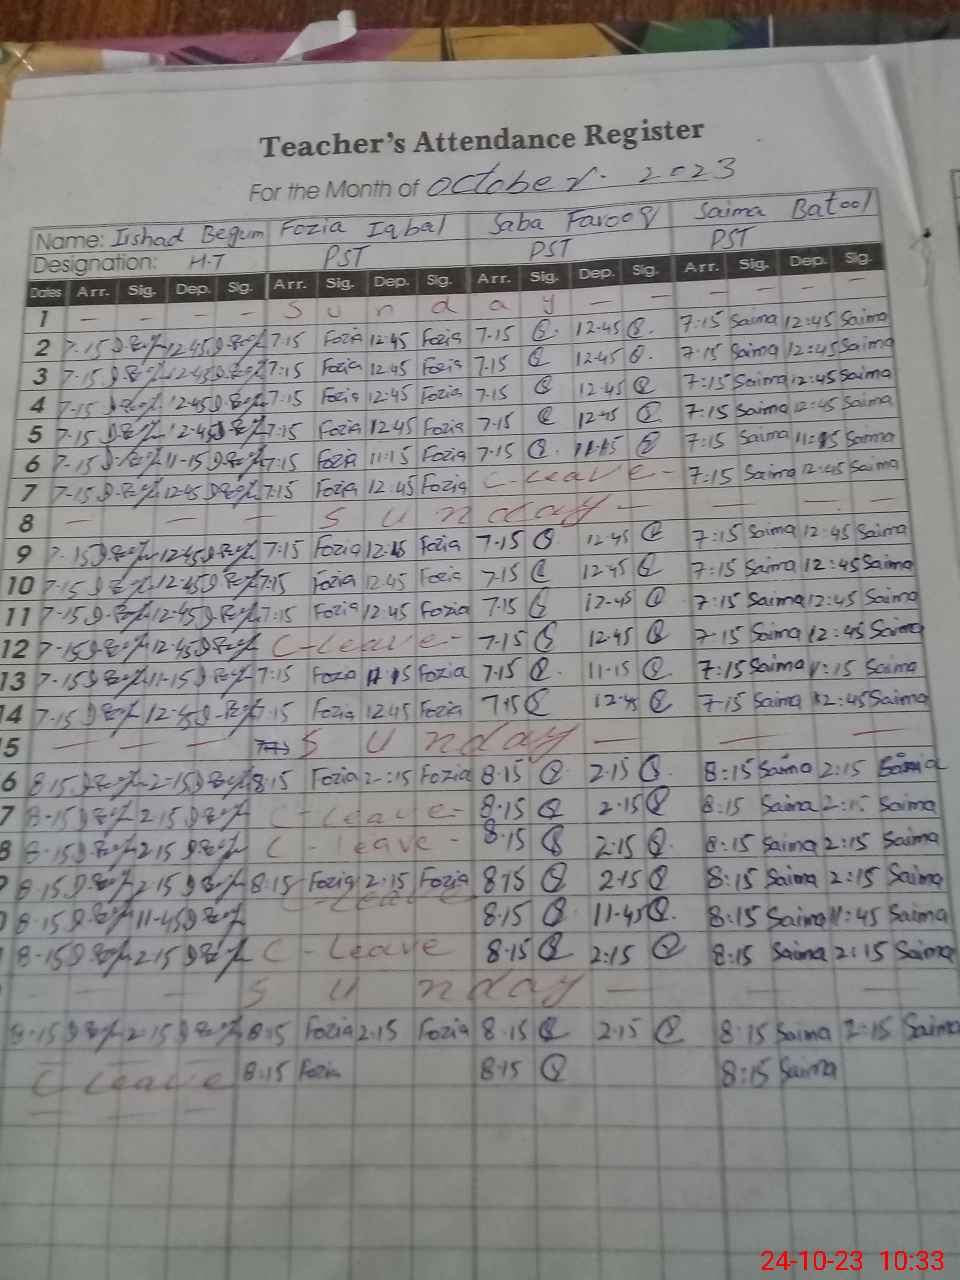 Teacher's Attendance Register
For the Month of October. 2023
Name: Irshad Begum Fozia Iqbal Saba Farooq Saima Batool
Designation: H.T PST PST PST
Dates Arr. Sig. Dep. Sig. Arr. Sig. Dep. Sig. Arr. Sig. Dep. Sig. Arr. Sig. Dep. Sig.
1 — — — — S u n d a y — — — — — —
2 7-15 12-45 7:15 Fozia 12:45 Fozia 7-15 12-45 7:15 Saima 12:45 Saima
3 7-15 12-45 7:15 Fozia 12:45 Fozia 7-15 12-45 7:15 Saima 12:45 Saima
4 7-15 12-45 7:15 Fozia 12:45 Fozia 7-15 12-45 7:15 Saima 12:45 Saima
5 7-15 12-45 7:15 Fozia 12:45 Fozia 7-15 12-45 7:15 Saima 12:45 Saima
6 7-15 11-15 7:15 Fozia 11:15 Fozia 7-15 11-15 7:15 Saima 11:15 Saima
7 7-15 12-45 7:15 Fozia 12:45 Fozia C-Leave- 7:15 Saima 12:45 Saima
8 — — — S u n d a y — — —
9 7-15 12-45 7:15 Fozia Fozia 7-15 12-45 7:15 Saima 12:45 Saima
10 7-15 12-45 7:15 Fozia 12:45 Fozia 7-15 12-45 7:15 Saima 12:45 Saima
11 7-15 12-45 7:15 Fozia 12:45 Fozia 7-15 12-45 7:15 Saima 12:45 Saima
12 7-15 12-45 C-Leave- 7-15 12-45 7:15 Saima 12:45 Saima
13 7-15 11-15 7:15 Fozia 11:15 Fozia 7-15 11-15 7:15 Saima 11:15 Saima
14 7-15 12-45 7:15 Fozia 12:45 Fozia 7-15 12-45 7:15 Saima 12:45 Saima
5 — — — S u n d a y — — —
6 8-15 2-15 8:15 Fozia 2:15 Fozia 8-15 2-15 8:15 Saima 2:15 Saima
7 8-15 2-15 C-Leave- 8-15 2-15 8:15 Saima 2:15 Saima
8 8-15 2-15 C-leave- 8-15 2-15 8:15 Saima 2:15 Saima
8-15 2-15 8:15 Fozia 2:15 Fozia 8-15 2-15 8:15 Saima 2:15 Saima
8-15 11-45 C-Leave 8-15 11-45 8:15 Saima 11:45 Saima
8-15 2-15 C-Leave 8-15 2:15 8:15 Saima 2:15 Saima
— — — S u n d a y — — —
8-15 2-15 8:15 Fozia 2:15 Fozia 8-15 2-15 8:15 Saima 2:15 Saima
C Leave 8:15 Fozia 8-15 8:15 Saima
24-10-23 10:33